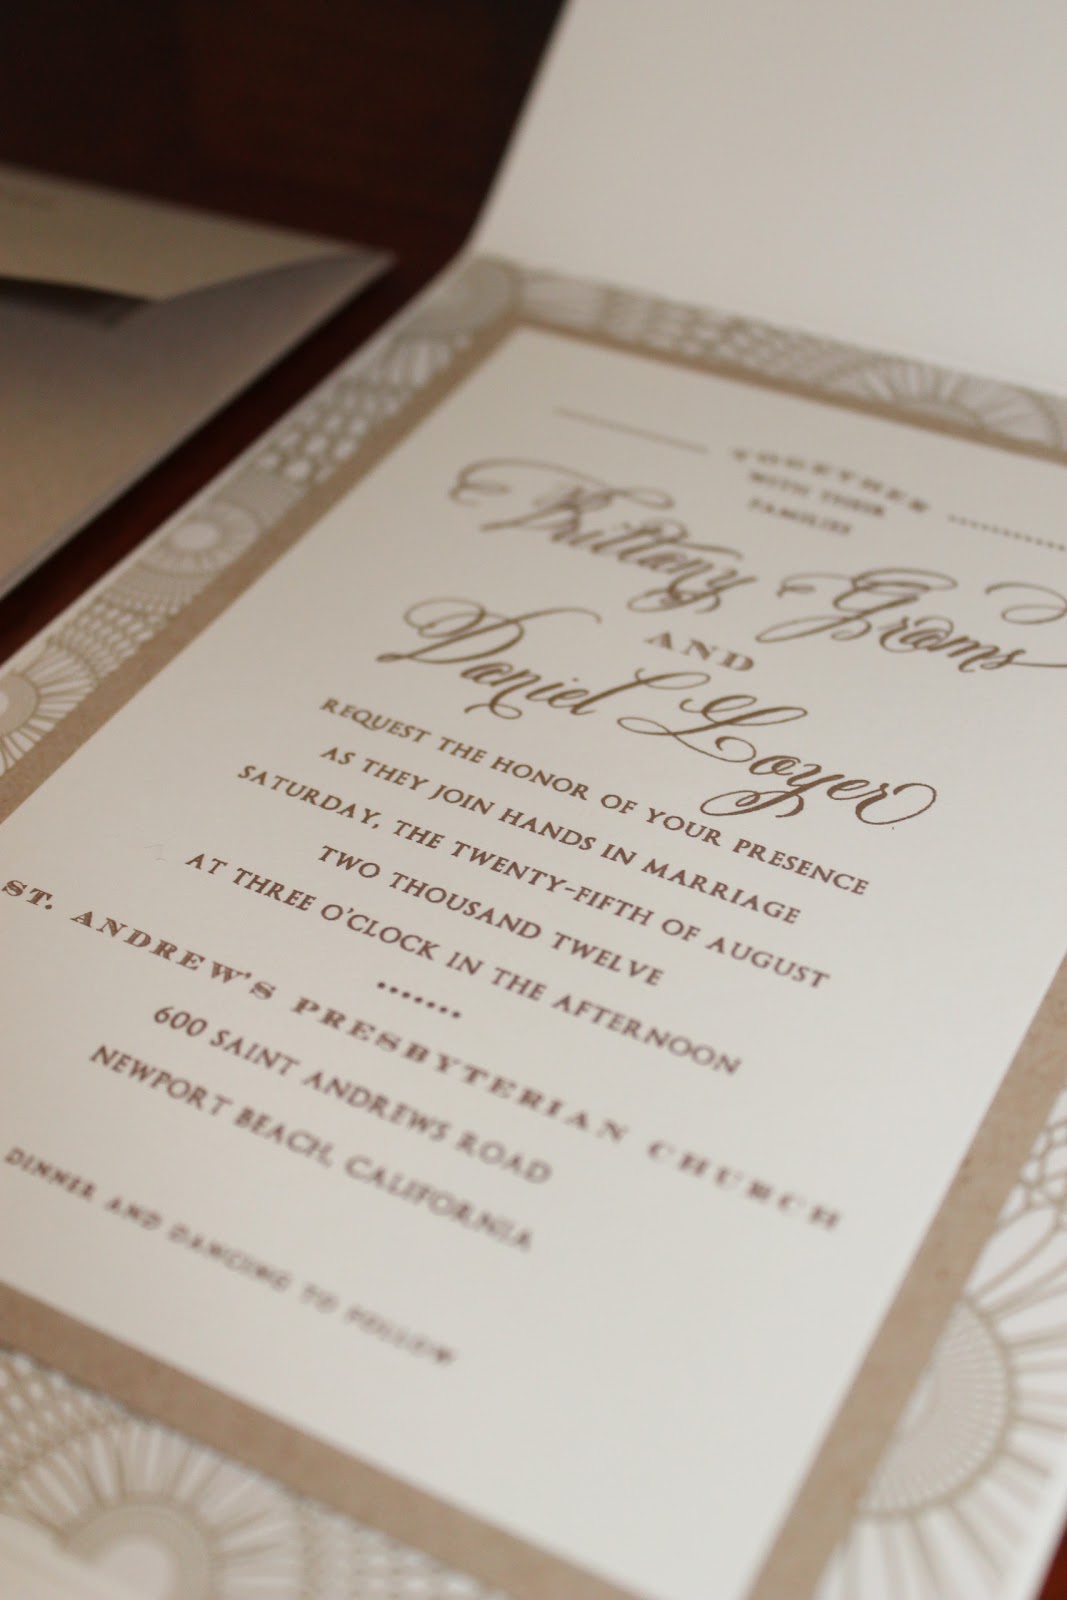 TOGETHER
WITH THEIR
FAMILIES
Brittany Grams
AND
Daniel Loyer
REQUEST THE HONOR OF YOUR PRESENCE
AS THEY JOIN HANDS IN MARRIAGE
SATURDAY, THE TWENTY-FIFTH OF AUGUST
TWO THOUSAND TWELVE
AT THREE O'CLOCK IN THE AFTERNOON
ST. ANDREW'S PRESBYTERIAN CHURCH
600 SAINT ANDREWS ROAD
NEWPORT BEACH, CALIFORNIA
DINNER AND DANCING TO FOLLOW